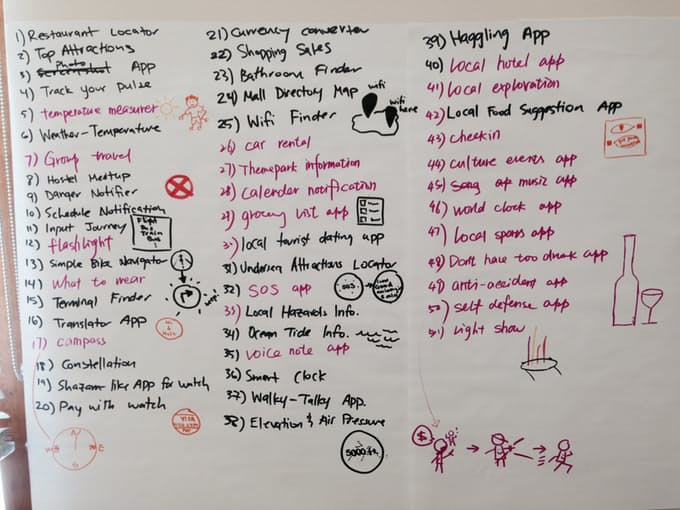 1) Restaurant Locator
2) Top Attractions
3) Photo App
4) Track your pulse
5) temperature measurer
6) Weather-Temperature
7) Group travel
8) Hostel Meetup
9) Danger Notifier
10) Schedule Notification
11) Input Journey
12) flashlight
13) Simple Bike Navigator
14) What to wear
15) Terminal Finder
16) Translator App
17) campass
18) Constellation
19) Shazam-like App for watch
20) Pay with watch
N
E
VISA
21) Currency converter
22) Shopping Sales
23) Bathroom Finder
24) Mall Directory Map
wifi
wifi here
25) Wifi Finder
26) car rental
27) Themepark information
28) calender notification
29) grocery list app
30) local tourist dating app
31) Undersea Attractions Locator
32) SOS app
SOS
33) Local Hazards Info.
34) Ocean Tide Info.
35) voice note app
36) Smart Clock
37) Walky-Talky App.
38) Elevation & Air Pressure
5000 ft.
39) Haggling App
40) local hotel app
41) local exploration
42) Local Food Suggestion App
43) checkin
44) culture events app
45) song ap music app
46) world clock app
47) local spans app
48) Don't have too drunk app
49) anti-accident app
50) self defense app
51) light show
$